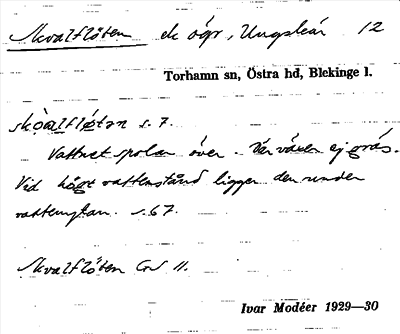 Skvalflöten sk ögr, Ungskär 12
Torhamn sn, Östra hd, Blekinge l.
s. 7.
Vattnet spolar över. Där växer ej gräs.
Vid högt vattenstånd ligger den under
vattenytan. s. 67.
Skvalflöten GS 11.
Ivar Modéer 1929—30